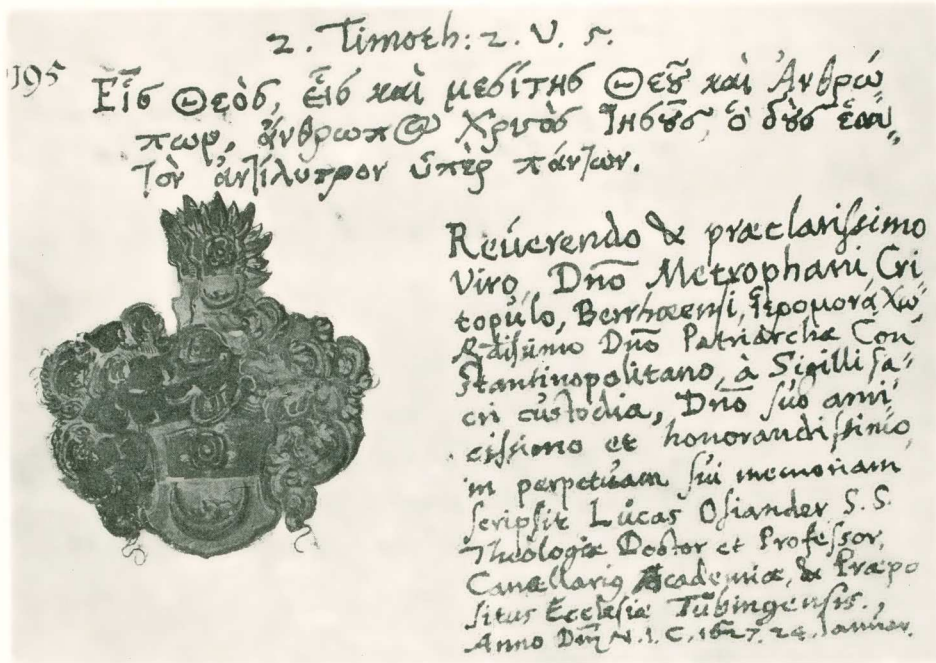 2. Timoth: 2. V. 5.
195
Εἷς Θεὸς, εἷς καὶ μεσίτης Θεοῦ καὶ Ἀνθρώ
πων, ἄνθρωπος Χριστὸς Ἰησοῦς, ὁ δοὺς ἑαυ
τὸν ἀντίλυτρον ὑπὲρ πάντων.
Reverendo & præclarissimo
Viro, Dnō Metrophani Cri
topulo, Berrhœensi, Ἱερομονάχω
Dnō Patriarchæ Con
stantinopolitano, à Sigilli sa
cri custodia, Dnō suo ami
cissimo et honorandissimo,
in perpetuam sui memoriam
scripsit Lucas Osiander S. S.
Theologiæ Doctor et Professor,
Cancellarius Academiæ, & Præpo
situs Ecclesiæ Tubingensis.
Anno Dm̄ N. I. C. 1627. 24. Januar.